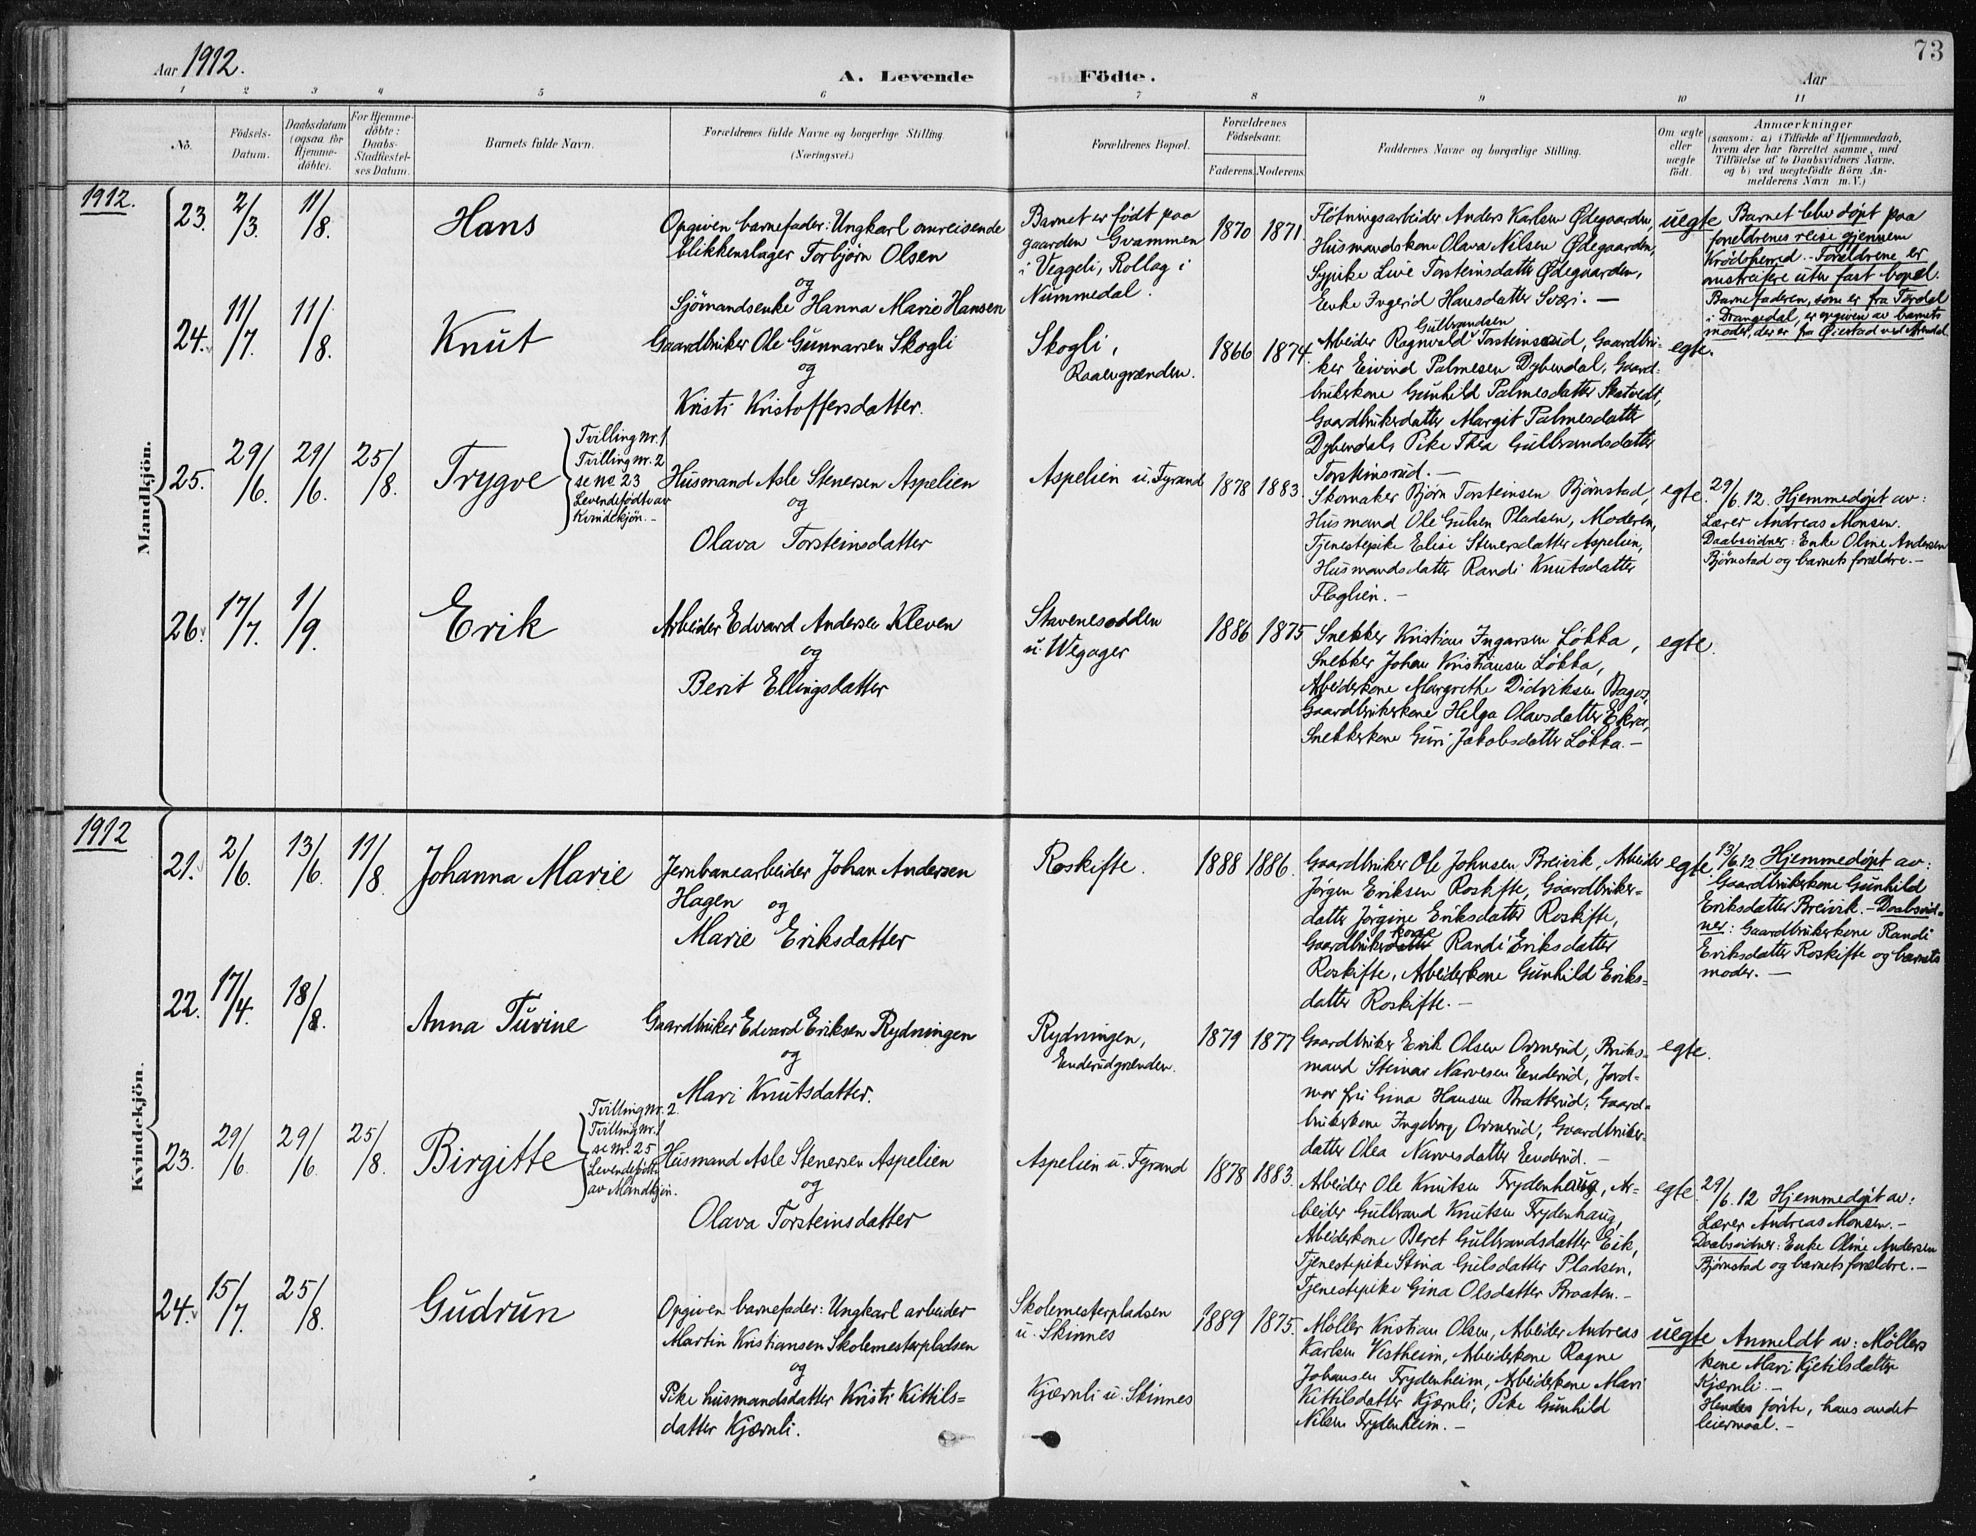 73
Aar 1912.
A. Levende Födte.
Aar
1 2 3 4 5 6 7 8 9 10 11
No.
Födsels-
Datum.
Daabsdatum
(ogsaa for
Hjemme-
döbte).
For Hjemme-
döbte:
Daabs-
Stadfæstel-
ses Datum.
Barnets fulde Navn.
Forældrenes fulde Navne og borgerlige Stilling.
(Næringsvei.)
Forældrenes Bopæl.
Forældrenes
Födselsaar.
Faderens. Moderens.
Faddernes Navne og borgerlige Stilling.
Om ægte
eller
uægte
födt.
Anmærkninger
(saasom: a) i Tilfælde af Hjemmedaab,
hvem der har forrettet samme, med
Tilföielse af to Daabsvidners Navne,
og b) ved uægtefödte Börn An-
melderens Navn m. V.)
Mandkjön.
1912.
23. 2/3. 11/8.
Hans
Opgiven barnefader: Ungkarl omreisende
blikkenslager Torbjörn Olsen
og
Sjömandsenke Hanna Marie Hansen
Barnet er født paa
gaarden Gvammen
i Veggeli, Rollag i
Nummedal.
1870 1871.
Fløtningsarbeider Anders Karlsen Ødegaarden,
Husmandskone Olava Nilsen Ødegaarden,
Sypike Live Torsteinsdatter Ødegaarden,
Enke Ingerid Hansdatter Sværi. —
uegte
Barnet blev døpt paa
forældrenes reise gjennem
Krødsherred. - Forældrene er
omstreifere uten fast bopæl.
Barnefaderen, som er fra Tørdal
i Drangedal, er opgiven av barnets
moder, der er fra Øiestad ved Arendal.
24. 11/7. 11/8.
Knut
Gaardbruker Ole Gunnarsen Skogli
og
Kristi Kristoffersdatter.
Skogli,
Raaengrænden.
1866 1874
Gulbrandsen
Arbeider Ragnvald Torsteinsrud, Gaardbru-
ker Eivind Palmesen Dybendal, Gaard-
brukerkone Gunhild Palmesdatter Skatvedt,
Gaardbrukerdatter Margit Palmesdatter
Dybendal, Pike Thea Gulbrandsdatter
Torsteinsrud. —
egte.
25. 29/6. 29/6. 25/8.
Trygve
Tvilling nr. 1
Tvilling nr. 2
se no 23
Levendefödte av
Kvindekjön. -
Husmand Asle Stenersen Aspelien
og
Olava Torsteinsdatter
Aspelien u. Fyrand
1878 1883.
Skomaker Björn Torsteinsen Björnstad,
Husmand Ole Gulsen Pladsen, Moderen,
Tjenestepike Elise Stenersdatter Aspelien,
Husmandsdatter Randi Knutsdatter
Flaglien. -
egte.
29/6. 12. Hjemmedøpt av:
Lærer Andreas Monsen.
Daabsvidner: Enke Oline Andersen
Bjørnstad og barnets forældre. -
26. 17/7. 1/9.
Erik
Arbeider Edvard Andersen Kleven
og
Berit Ellingsdatter
Stavenesodden
u. Wegager
1886 1875
Snekker Kristian Ingarsen Løkka,
Snekker Johan Kristiansen Løkka,
Arbeiderkone Margrethe Didriksen Bager,
Gaardbrukerkone Helga Olavsdatter Ekra,
Snekkerkone Guri Jakobsdatter Løkka. -
egte.
Kvindekjön.
1912
21. 2/6. 13/6. 11/8.
Johanna Marie
Jernbanearbeider Johan Andersen
Hagen og
Marie Eriksdatter
Roskifte.
1888 1886.
Gaardbruker Ole Johnsen Breivik, Arbeider
Jörgen Eriksen Roskifte, Gaardbruker-
datter Jörgine Eriksdatter Roskifte,
kone
Gaardbrukerdatter Randi Eriksdatter
Roskifte, Arbeiderkone Gunhild Eriks-
datter Roskifte. -
egte.
13/6. 12. Hjemmedøpt av:
Gaardbrukerkone Gunhild
Eriksdatter Breivik. - Daabsvid-
ner: Gaardbrukerkone Randi
Eriksdatter Roskifte og barnets
moder. -
22. 17/4. 18/8.
Anna Turine
Gaardbruker Edvard Eriksen Rydningen
og
Mari Knutsdatter.
Rydningen,
Enderudgrænden.
1879 1877
Gaardbruker Erik Olsen Ormerud, Bruks-
mand Steinar Narvesen Enderud, Jord-
mor fru Gina Hansen Bratterud, Gaard-
brukerkone Ingeborg Ormerud, Gaardbruker-
datter Olea Narvesdatter Enderud. -
egte.
23. 29/6. 29/6. 25/8.
Birgitte
Tvilling nr. 2
Tvilling nr. 1
se nr. 25
Levendefödte
av Mandkjön.
Husmand Asle Stenersen Aspelien
og
Olava Torsteinsdatter
Aspelien u. Fyrand
1878 1883.
Arbeider Ole Knutsen Frydenhaug, Ar-
beider Gulbrand Knutsen Frydenhaug,
Arbeiderkone Beret Gulbrandsdatter Eik,
Tjenestepike Stina Gulsdatter Pladsen,
Tjenestepike Gina Olsdatter Braaten. -
egte.
29/6. 12 Hjemmedøpt av:
Lærer Andreas Monsen. -
Daabsvidner: Enke Oline Andersen
Bjørnstad og barnets forældre. -
24. 15/7. 25/8.
Gudrun
Opgiven barnefader: Ungkarl arbeider
Martin Kristiansen Skolemesterpladsen
og
Pike husmandsdatter Kristi Kittils-
datter Kjærnli.
Skolemesterpladsen
u. Skinnes
Kjærnli u. Skinnes
1889 1875.
Møller Kristian Olsen, Arbeider Andreas
Karlsen Vestheim, Arbeiderkone Ragne
Johansen Frydenheim, Arbeiderkone Mari
Kittilsdatter Kjærnli, Pike Gunhild
Nilsen Frydenheim. -
uegte
Anmeldt av: Møllers
kone Mari Kjetilsdatter
Kjærnli. -
Hendes første, hans andet
leiermaal. -